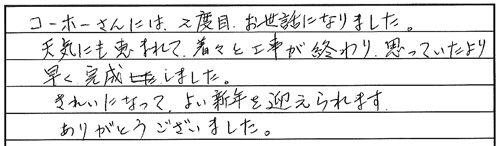 コーホーさんには、2度目、お世話になりました。
天気にも恵まれて、着々と工事が終わり、思っていたより
早く完成しました。
きれいになって、よい新年を迎えられます。
ありがとうございました。